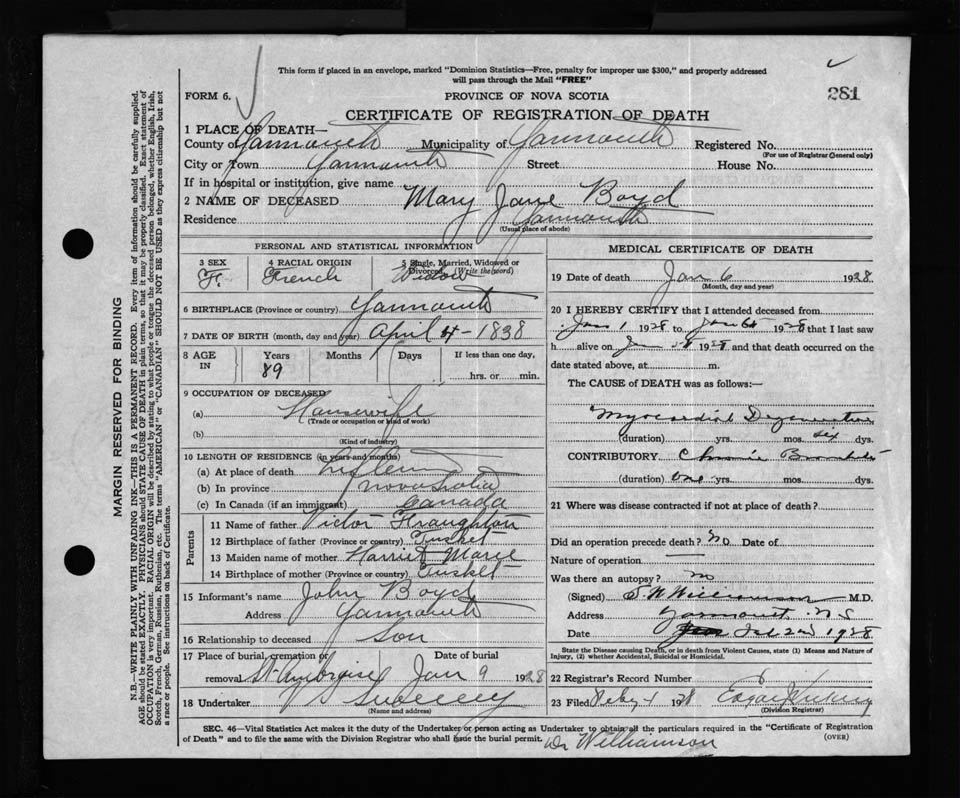 This form if placed in an envelope, marked "Dominion Statistics—Free, penalty for improper use $300," and properly addressed
will pass through the Mail "FREE"
FORM 6.
PROVINCE OF NOVA SCOTIA
281
CERTIFICATE OF REGISTRATION OF DEATH
1 PLACE OF DEATH—
County of Yarmouth Municipality of Yarmouth Registered No.
(For use of Registrar General only)
City or Town Yarmouth Street House No.
If in hospital or institution, give name
2 NAME OF DECEASED Mary Jane Boyd
Residence Yarmouth
(Usual place of abode)
PERSONAL AND STATISTICAL INFORMATION
3 SEX 4 RACIAL ORIGIN 5 Single, Married, Widowed or
Divorced, (Write the word)
F. French Widow
6 BIRTHPLACE (Province or country) Yarmouth
7 DATE OF BIRTH (month, day and year) April 4 - 1838
8 AGE IN Years Months Days If less than one day,
89 hrs. or min.
9 OCCUPATION OF DECEASED
(a) Housewife
(Trade or occupation or kind of work)
(b)
(Kind of industry)
10 LENGTH OF RESIDENCE (in years and months)
(a) At place of death Lifetime
(b) In province Nova Scotia
(c) In Canada (if an immigrant) Canada
Parents
11 Name of father Victor Straughton
12 Birthplace of father (Province or country) Tusket
13 Maiden name of mother Harriet
14 Birthplace of mother (Province or country) Tusket
15 Informant's name John Boyd
Address Yarmouth
16 Relationship to deceased Son
17 Place of burial, cremation or Date of burial
removal St Ambroise Jan 9 1928
18 Undertaker Sweeney
(Name and address)
MEDICAL CERTIFICATE OF DEATH
19 Date of death Jan 6 1928
(Month, day and year)
20 I HEREBY CERTIFY that I attended deceased from
Jan 1 1928 to Jan 6 1928 that I last saw
h alive on Jan 1928 and that death occurred on the
date stated above, at m.
The CAUSE of DEATH was as follows:
Myocardial Degeneration
(duration) yrs. mos. six dys.
CONTRIBUTORY Chronic Bronchitis
(duration) one yrs. mos. dys.
21 Where was disease contracted if not at place of death?
Did an operation precede death? No Date of
Nature of operation
Was there an autopsy? no
(Signed) S W Williamson M.D.
Address Yarmouth, N.S
Date Feb 2nd 1928
State the Disease causing Death, or in death from Violent Causes, state (1) Means and Nature of
Injury, (2) whether Accidental, Suicidal or Homicidal.
22 Registrar's Record Number
23 Filed Feby 4 1928
(Division Registrar)
SEC. 46—Vital Statistics Act makes it the duty of the Undertaker or person acting as Undertaker to obtain all the particulars required in the "Certificate of Registration
of Death" and to file the same with the Division Registrar who shall issue the burial permit.
(OVER)
Dr Williamson
MARGIN RESERVED FOR BINDING
N.B.—WRITE PLAINLY WITH UNFADING INK—THIS IS A PERMANENT RECORD. Every item of information should be carefully supplied.
AGE should be stated EXACTLY. PHYSICIANS should STATE CAUSE OF DEATH in plain terms, so that it may be properly classified. Exact statement of
OCCUPATION is very important. RACIAL ORIGIN will be described by stating to what people or tongue the deceased person belonged, whether English, Irish,
Scotch, French, German, Russian, Ruthenian, etc. The terms "AMERICAN" or "CANADIAN" SHOULD NOT BE USED as they express citizenship but not
a race or people. See instructions on back of Certificate.